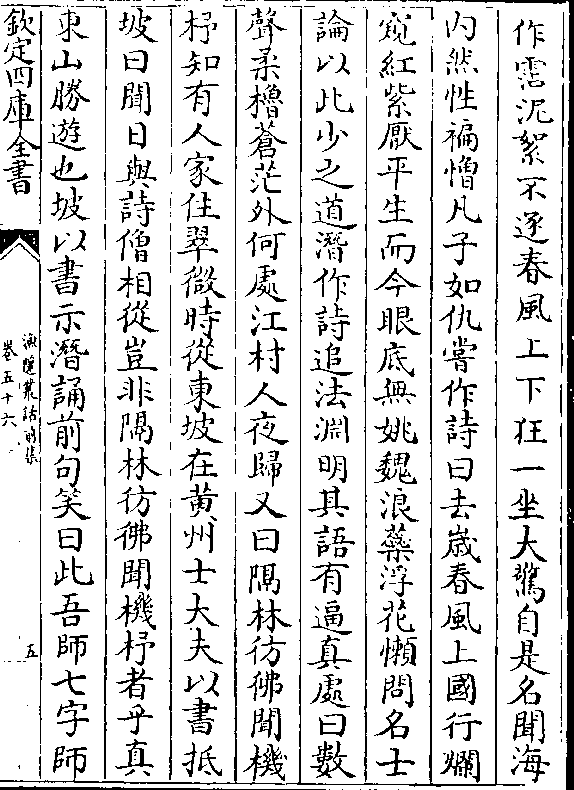 作霑泥絮不逐春風上下狂一坐大驚自是名聞海
内然性褊憎凡子如仇嘗作詩曰去嵗春風上國行爛
窺紅紫厭平生而今眼底無姚魏浪蘂浮花懶問名士
論以此少之道潛作詩追法淵明其語有逼真處曰數
聲柔櫓蒼茫外何處江村人夜歸又曰隔林彷彿聞機
杼知有人家住翠微時從東坡在黃州士大夫以書抵
坡曰聞日與詩僧相從豈非隔林彷彿聞機杼者乎真
東山勝遊也坡以書示潛誦前句笑曰此吾師七字師
欽定四庫全書
漁隱叢話前集
卷五十六
五